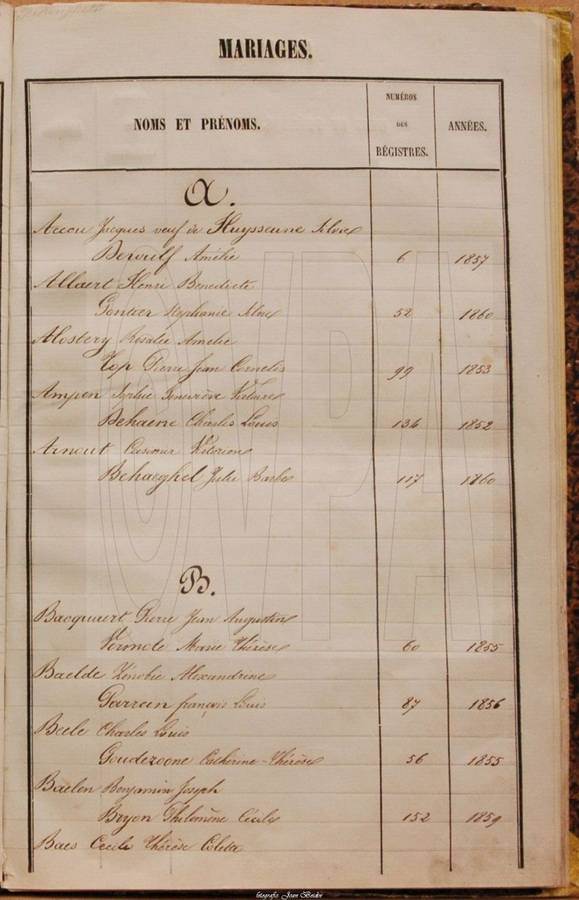 MARIAGES.
NOMS ET PRÉNOMS.
NUMÉROS
DES
RÉGISTRES.
ANNÉES.
A.
Accou Jacques veuf de Huysseune
Deroulf Amélie 6 1857
Allaert Henri Benedicte
Gontier Stéphanie 52 1860
Mostery Rosalie Amelie
Top Pierre Jean Cornelis 99 1853
Ampen Sophie Geneviève
Behaeve Charles Louis 134 1852
Arnout Victorien
Behaeghel Julie Barbe 117 1860
B.
Bacquaert Pierre Jean Augustin
Vermote Marie Thérèse 60 1855
Baelde Zénobie Alexandrine
Parrein françois Louis 87 1856
Beele Charles Louis
Goudezoone Catherine-Thérèse 56 1855
Baelen Benjamin Joseph
Bryon Philomène Cécile 152 1859
Baes Cecile Thérèse Coleta